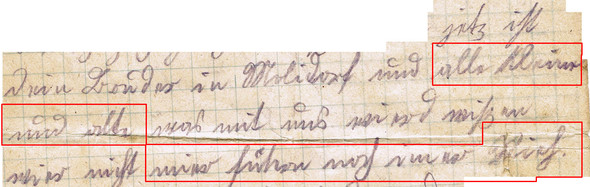 jetz ist
Dein Bruder in Molidorf und alle kleine
und alte was mit uns wierd wissen
wier nicht mier füren noch imer Vieh.